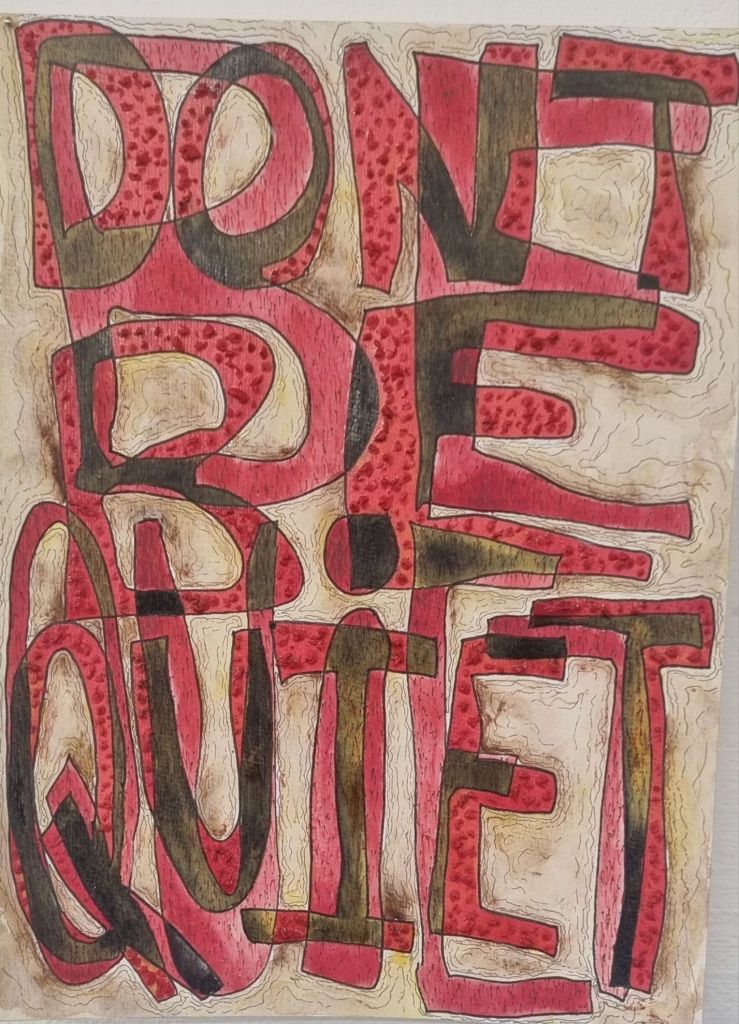 DONT
BE
QUIET